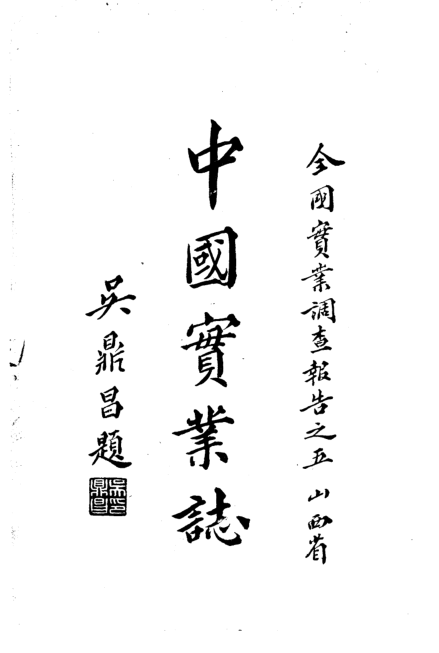 全國實業調查報告之五 山西省
中國實業誌
吳鼎昌題